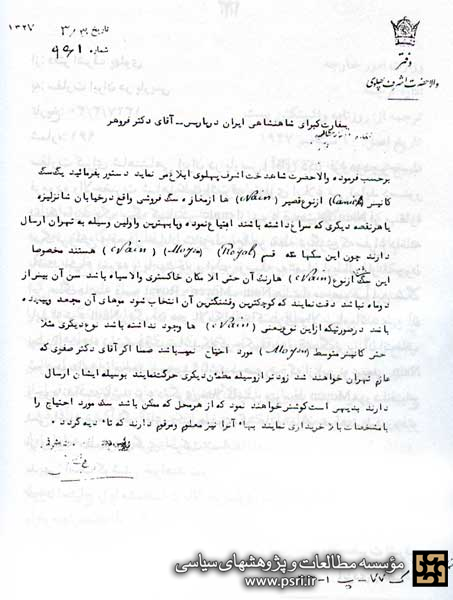 تاریخ ۳ ۱۳۲۷
شماره ۹۹۱
دفتر
والاحضرت اشرف پهلوی
سفارت کبرای شاهنشاهی ایران درپاریس ــ آقای دکتر فروهر
برحسب فرموده والاحضرت شاهدخت اشرف پهلوی ابلاغ می نماید دستور بفرمائید یک سگ
کانیس (Canich) ازنوع قصیر (Nain) ها ازمغازه سگ فروشی واقع درخیابان شانزلیزه
یاهرنقطه دیگری که سراغ داشته باشند ابتیاع نموده وبا بهترین واولین وسیله به تهران ارسال
دارند چون این سگها سه قسم (Royal) (Moyen) (Nain) هستند مخصوصا
این سگ ازنوع (Nain) هارنگ آن حتی الامکان خاکستری والاسیاه باشد سن آن بیش از
دوماه نباشد دقت نمایند که کوچکترین وقشنگترین آن انتخاب شود موهای آن مجعد وپیچیده
باشد درصورتیکه ازاین نوع یعنی (Nain) ها وجود نداشته باشد نوع دیگری مثلا
حتی کانیز متوسط (Moyen) مورد احتیاج نمیباشد ضمنا اگر آقای دکتر صفوی که
عازم تهران خواهند شد زودتر ازوسیله مطمئن دیگری حرکت نمایند بوسیله ایشان ارسال
دارند بدیهی است کوشش خواهند نمود که از هرمحل که ممکن باشد سگ مورد احتیاج را
بامشخصات بالا خریداری نمایند بهاء آنرا نیز معلوم ومرقوم دارند که تادیه گردد ۰
مؤسسه مطالعات و پژوهشهای سیاسی
www.psri.ir